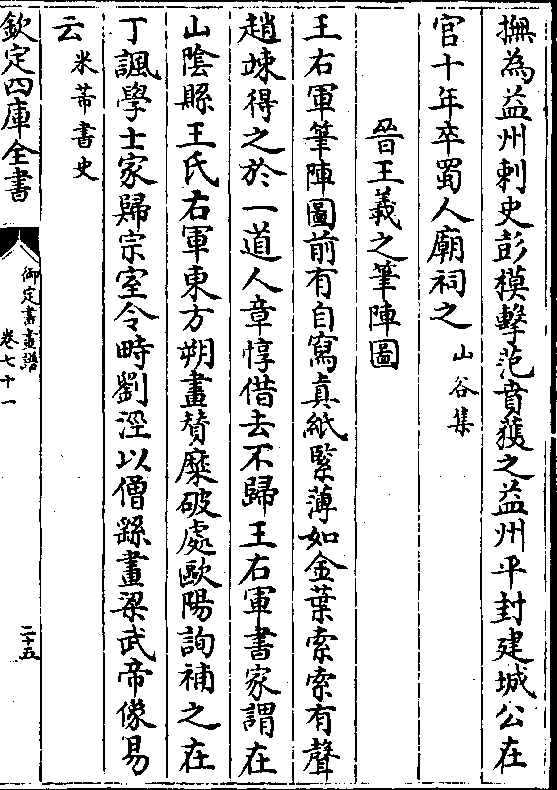 撫為益州刺史彭模擊范賁獲之益州平封建城公在
官十年卒蜀人廟祠之山谷集
晉王羲之筆陣圖
王右軍筆陣圖前有自寫真紙緊薄如金葉索索有聲
趙竦得之於一道人章惇借去不歸王右軍書家謂在
山陰縣王氏右軍東方朔畫贊糜破處歐陽詢補之在
丁諷學士家歸宗室令時劉涇以僧繇畫梁武帝像易
云米芾書史
欽定四庫全書
御定書畫譜
卷七十一
二十五